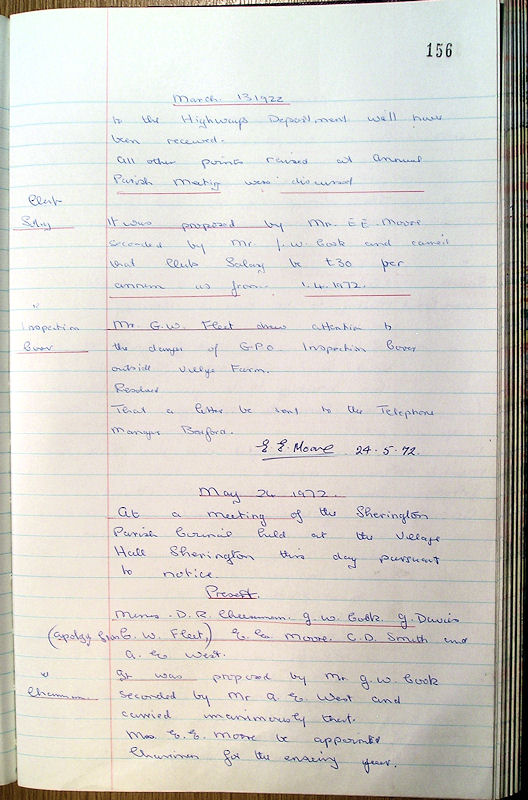 156
March 13 1922
to the Highways Department will have
been received.
All other points raised at Annual
Parish Meeting were discussed
Clerk
Salary
It was proposed by Mr. E E Moore
seconded by Mr J. W. Cook and carried
that Clerks Salary be £30 per
annum as from 1.4.1972.
Inspection
Cover
Mr. G.W. Fleet drew attention to
the danger of G.P.O. Inspection Cover
outside Village Farm.
Resolved
That a letter be sent to the Telephone
Manager Bedford.
E E. Moore 24.5.72.
May 24 1972.
At a meeting of the Sherington
Parish Council held at the Village
Hall Sherington this day pursuant
to notice.
Present.
D. R. G. W. Cook. G. Davies
(apology from G. W. Fleet,) E. E. Moore. C. D. Smith and
A. E. West.
Chairman
It was proposed by Mr G. W. Cook
seconded by Mr A. E. West and
carried unanimously that.
Mrs. E. E. Moore be appointed
Chairman for the ensuing year.